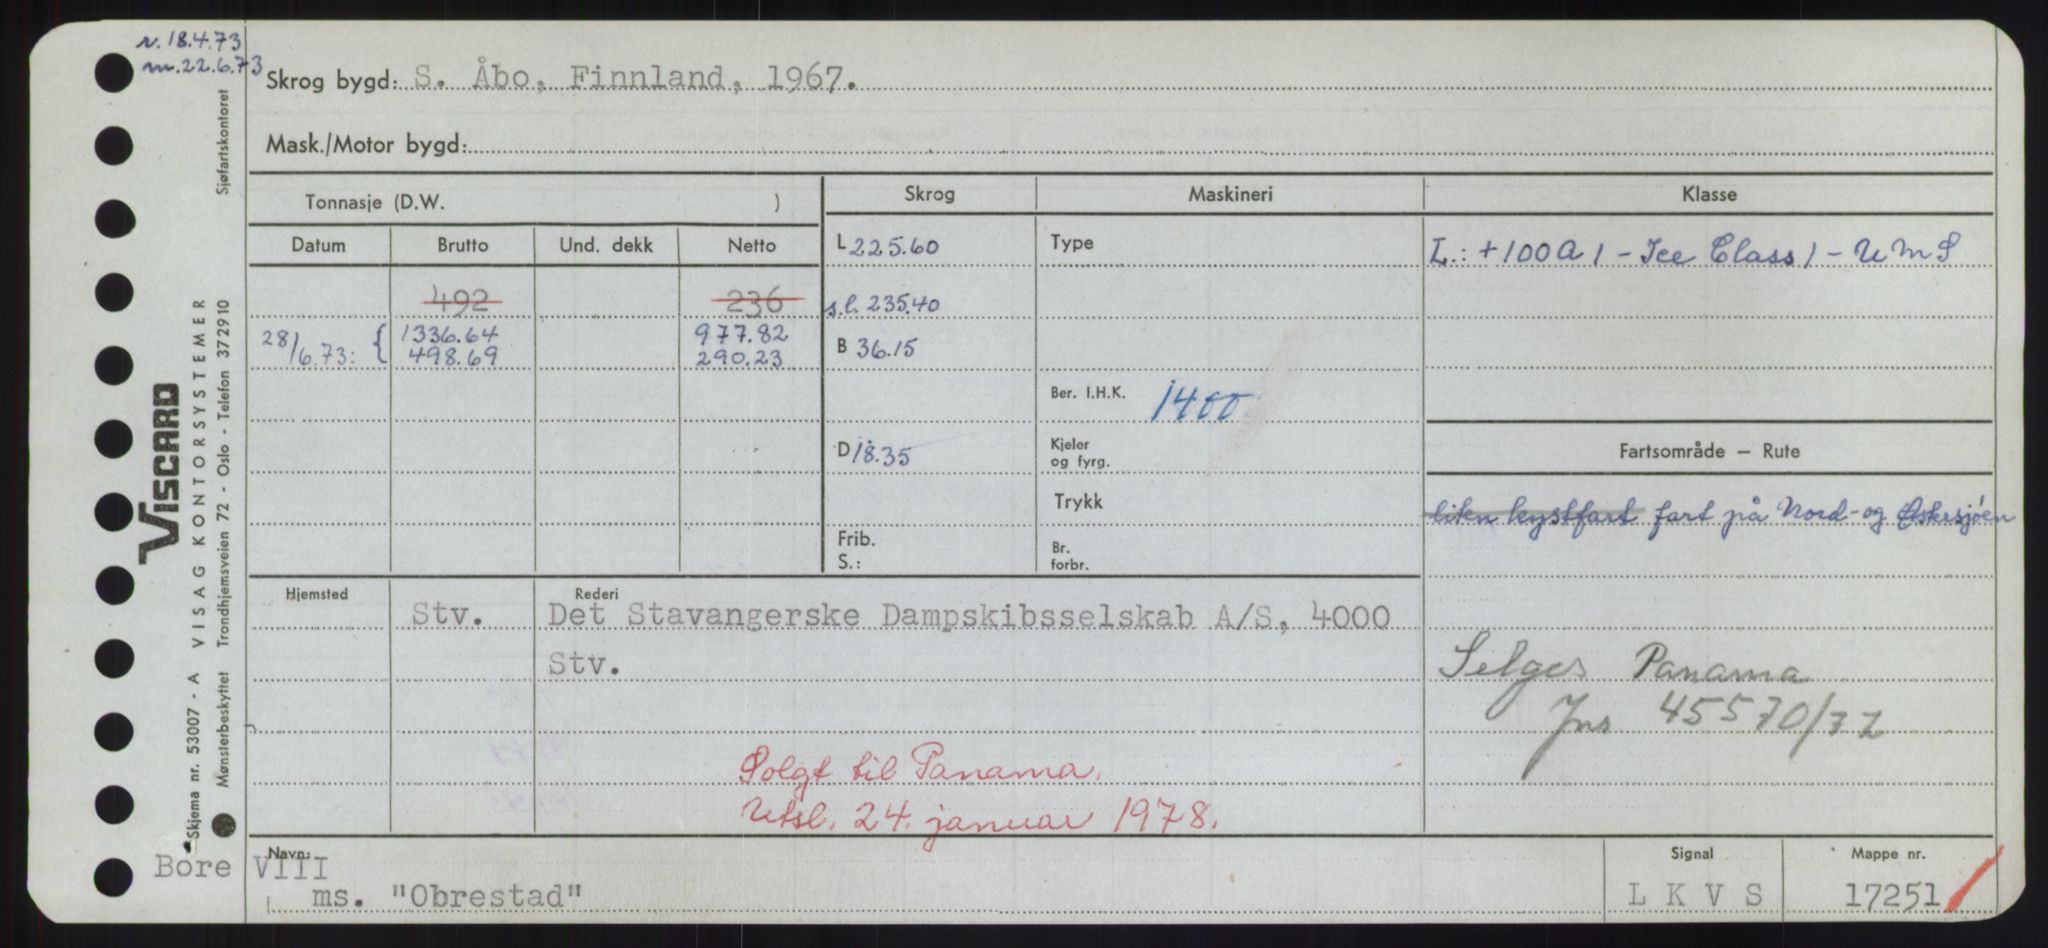 r. 18.4.73
m. 22.6.73
Skrog bygd: S. Åbo, Finnland, 1967.
Mask./Motor bygd:
Tonnasje (D.W. )
Skrog
Maskineri
Klasse
Datum
Brutto
Und. dekk
Netto
L 225.60
Type
L.: +100A1 - Ice Class 1 - UMS
492
236
s.l. 235.40
28/6.73: { 1336.64 977.82
498.69 290.23
B 36.15
Ber. I.H.K. 1400
D 18.35
Kjeler
og fyrg.
Fartsområde — Rute
Trykk
liten kystfart fart på Nord- og Østersjøen
Frib.
S.:
Br.
forbr.
Hjemsted
Rederi
Stv.
Det Stavangerske Dampskibsselskab A/S, 4000
Stv.
Selges Panama
Jnr 45570/77
Solgt til Panama.
Utsl. 24. januar 1978.
Navn:
Bore VIII
ms. "Obrestad"
Signal
L K V S
Mappe nr.
17251
VISCARD
VISAG KONTORSYSTEMER
Skjema nr. 53007 - A
Mønsterbeskyttet Trondhjemsveien 72 - Oslo - Telefon 372910 Sjøfartskontoret